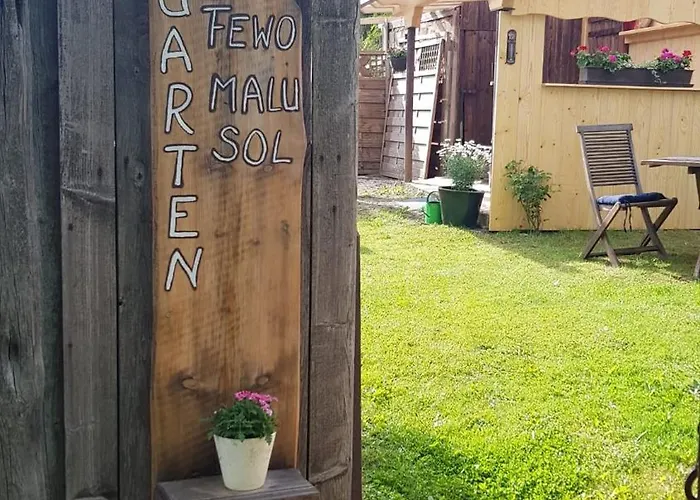 GARTEN
FEWO
MALU
SOL